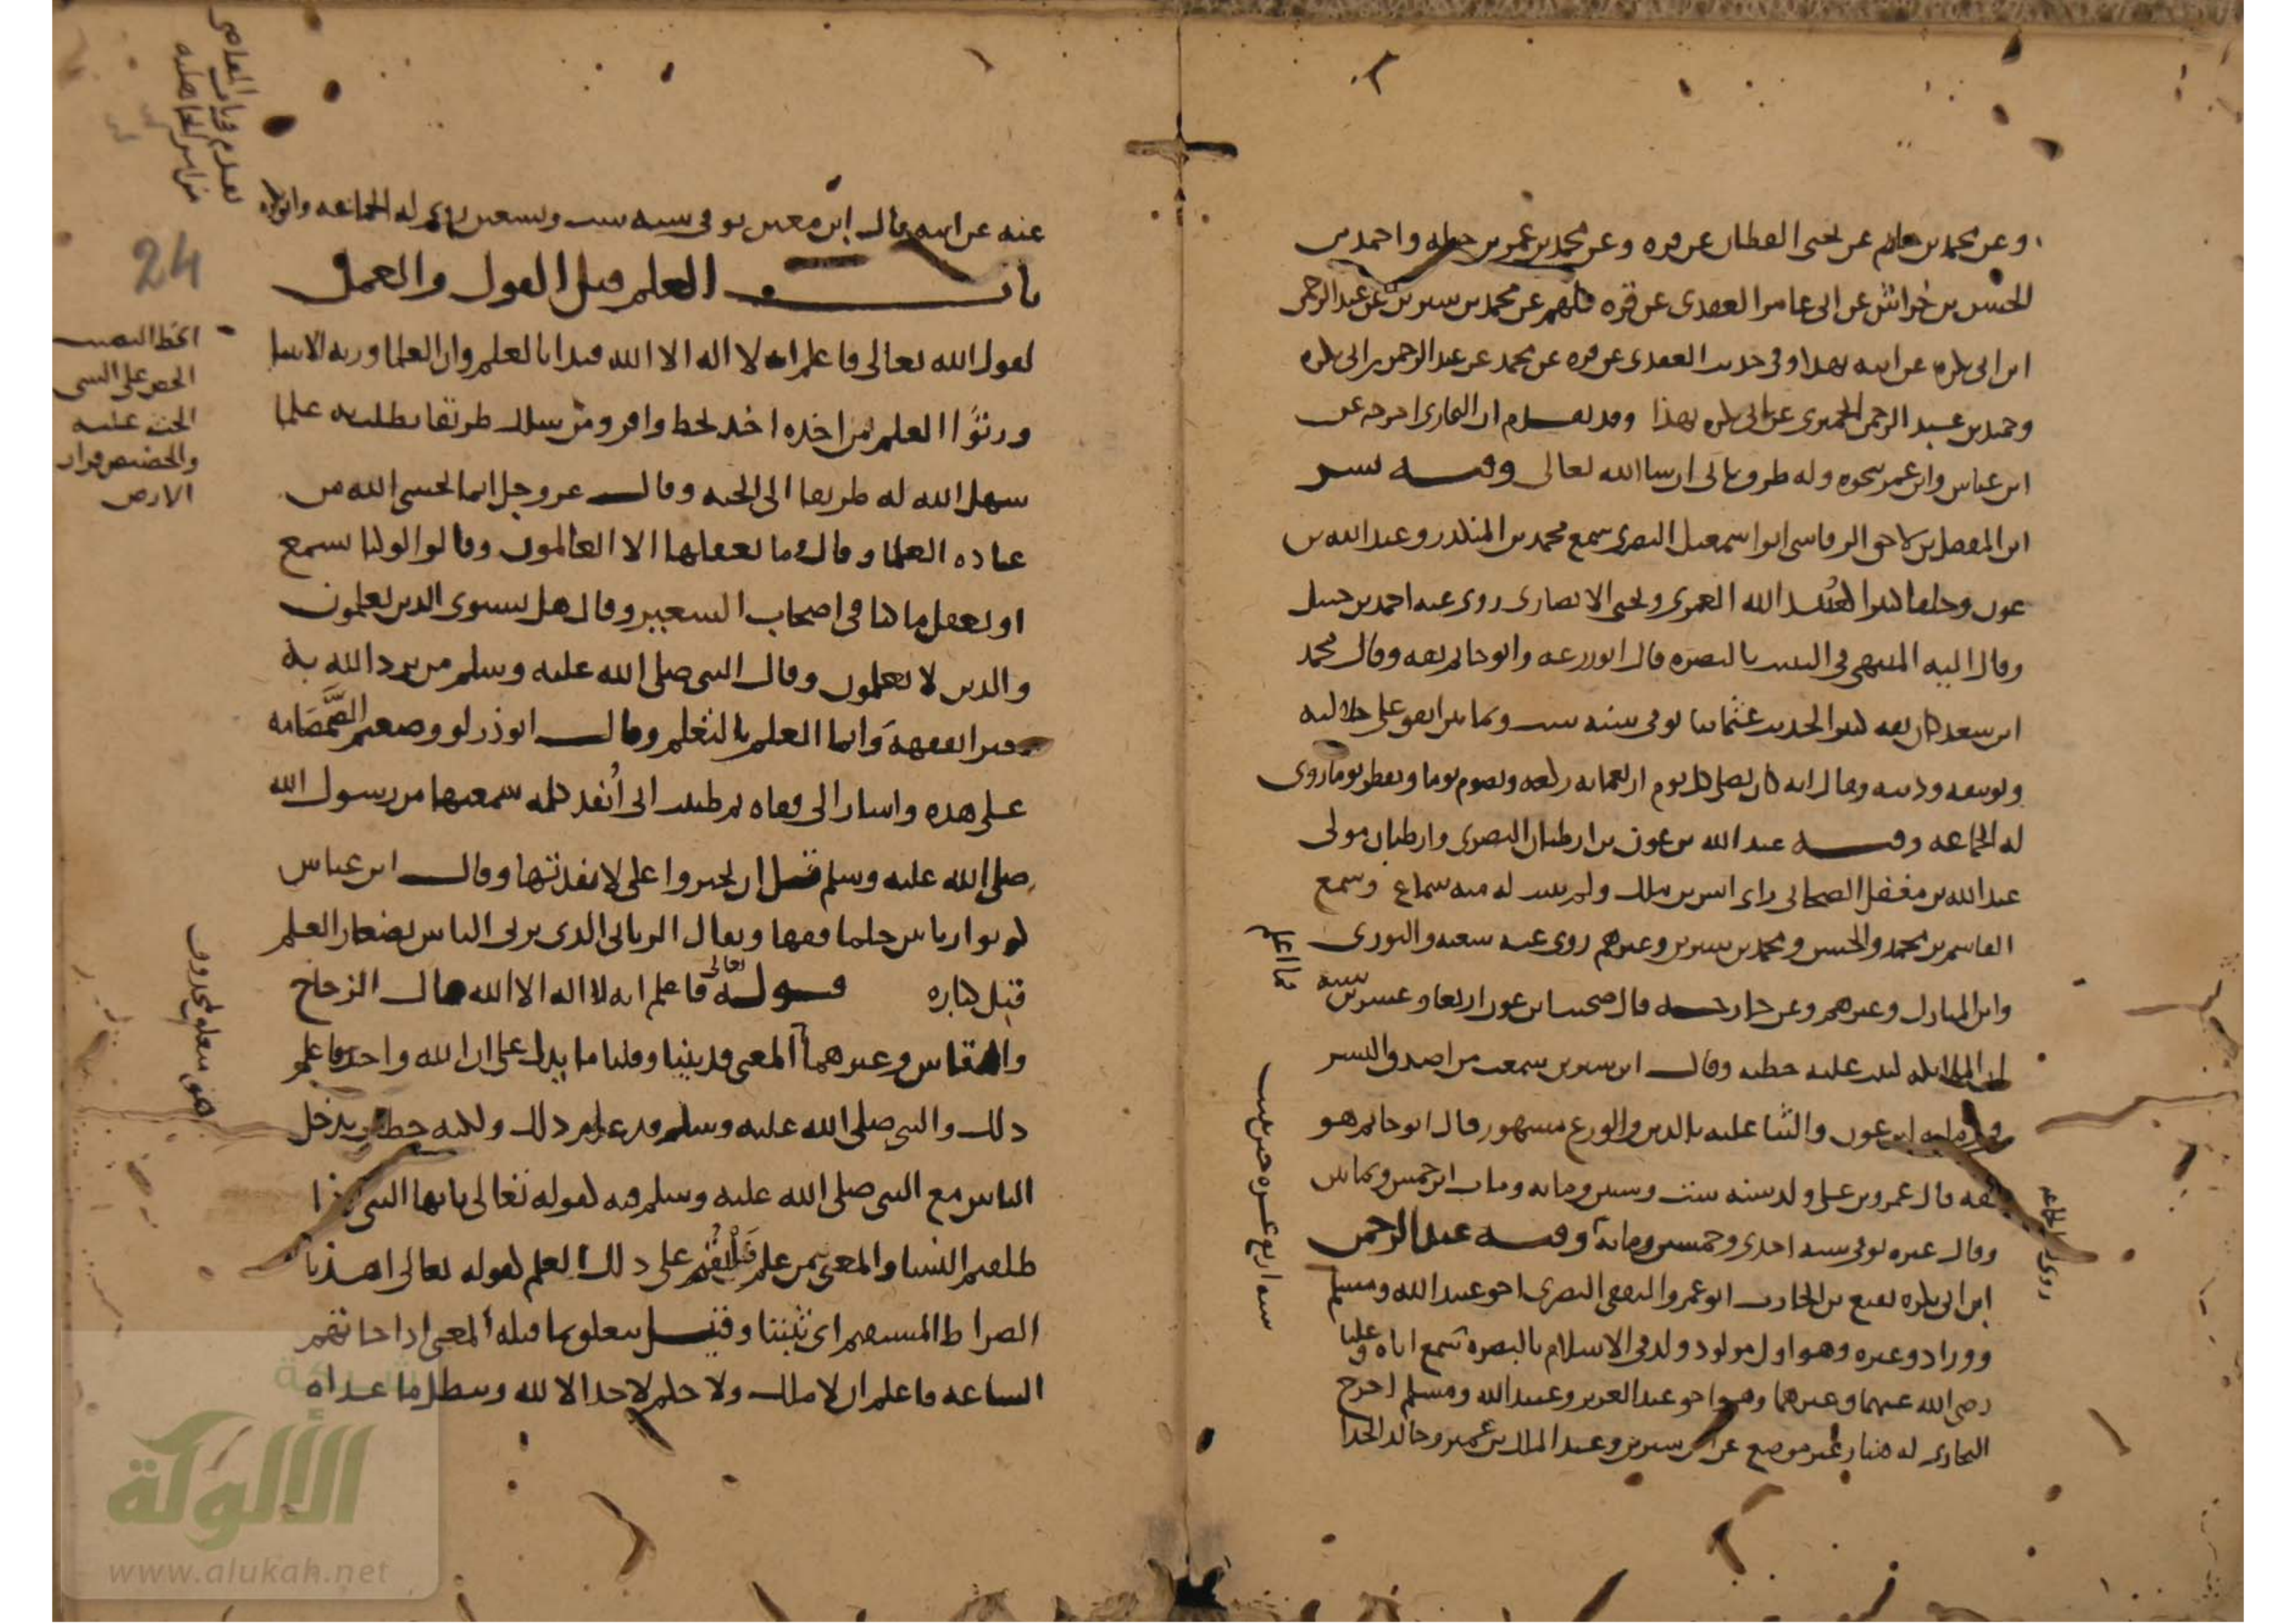 وعن محمد بن حاتم عن يحيى القطان عن قره وعن محمد بن عمرو بن جبله واحمد بن
الحسن بن خراش عن ابى عامر العقدى عن قره كلهم عن محمد بن سيرين عن عبد الرحمن
ابن ابى بكره عن ابيه بهذا وفى حديث العقدى عن قره عن محمد عن عبد الرحمن بن ابى بكره
وحميد بن عبد الرحمن الحميرى عن ابى بكره بهذا وقد تقدم ان البخارى اخرجه عن
ابن عباس وابن عمر بنحوه وله طرق تاتى ان شا الله تعالى وفيه بشر
ابن المفضل بن لاحق الرقاشى ابو اسمعيل البصرى سمع محمد بن المنكدر وعبد الله بن
عون وخلقا كثيرا كعبيد الله العمرى ويحيى الانصارى روى عنه احمد بن حنبل
وقال اليه المنتهى فى التثبت بالبصره قال ابو زرعه وابو حاتم ثقه وقال محمد
ابن سعد كان ثقه كثير الحديث عثمانيا توفى سنه ست وثمانين اتفق على جلالته
وتوثيقه ودينه ويقال انه كان يصلى كل يوم اربعمايه ركعه ويصوم يوما ويفطر يوما روى
له الجماعه وفيه عبد الله بن عون بن ارطبان البصرى وارطبان مولى
عبد الله بن مغفل الصحابى راى انس بن مالك ولم يثبت له منه سماع وسمع
القاسم بن محمد والحسن ومحمد بن سيرين وغيرهم روى عنه شعبه والثورى
وابن المبارك وغيرهم وعن خارجه قال صحبت ابن عون اربعا وعشرين سنه
فما اعلم
ان الملايكه كتبت عليه خطيه وقال ابن سيرين سمعت من اصدق البشر
ابن عون والثنا عليه بالدين والورع مشهور قال ابو حاتم هو
ثقه قال عمرو بن على ولد سنه ست وستين ومات ابن خمس وثمانين
وقال غيره توفى سنه احدى وخمسين ومايه وفيه عبد الرحمن
روى له الجماعه
ابن ابى بكره نفيع بن الحارث ابو عمرو الثقفى البصرى اخو عبيد الله ومسلم
ووراد وغيره وهو اول مولود ولد فى الاسلام بالبصره سمع اباه وعليا
سنه اربع عشره حين بنيت
رضى الله عنهما وغيرهما وهو اخو عبد العزيز وعبيد الله ومسلم اخرج
البخارى له هنا وغير موضع عن ابن سيرين وعبد الملك بن عمير وخالد الحذا
عنه عن ابيه قال ابن معين توفى سنه ست وتسعين روى له الجماعه وابو بكره
تقدم فى باب المعاصى
من امر الجاهليه
24
باب العلم قبل القول والعمل
لقول الله تعالى فاعلم انه لا اله الا الله فبدا بالعلم وان العلما ورثه الانبيا
ورثوا العلم من اخذه اخذ بحظ وافر ومن سلك طريقا يطلب به علما
سهل الله له طريقا الى الجنه وقال عز وجل انما يخشى الله من
عباده العلما وقال وما يعقلها الا العالمون وقالوا لو كنا نسمع
او نعقل ما كنا فى اصحاب السعير وقال هل يستوى الذين يعلمون
والذين لا يعلمون وقال النبى صلى الله عليه وسلم من يرد الله به
خيرا يفقهه وانما العلم بالتعلم وقال ابو ذر لو وضعتم الصمصامه
على هذه واشار الى قفاه ثم ظننت انى انفذ كلمه سمعتها من رسول الله
صلى الله عليه وسلم قبل ان تجيزوا على لانفذتها وقال ابن عباس
كونوا ربانيين حلما فقها ويقال الربانى الذى يربى الناس بصغار العلم
قبل كباره قوله تعالى فاعلم انه لا اله الا الله قال الزجاج
وغيرهما المعنى قد بينا وقلنا ما يدل على ان الله واحد فاعلم
ذلك والنبى صلى الله عليه وسلم قد علم ذلك ولكنه خطاب يدخل
الناس مع النبى صلى الله عليه وسلم فيه لقوله تعالى يايها النبى اذا
طلقتم النسا والمعنى من علم فليقم على ذلك العلم لقوله تعالى اهدنا
الصراط المستقيم اى ثبتنا وقيل يتعلق بما قبله المعنى اذا جاتهم
الساعه فاعلم ان لا ملك ولا حكم لاحد الا لله ويبطل ما عداه
الحظ النصيب
الحض على الشى
الحث عليه
والحضيض قرار
الارض
هنى يتعلق بمحذوف
الألوكة
www.alukah.net